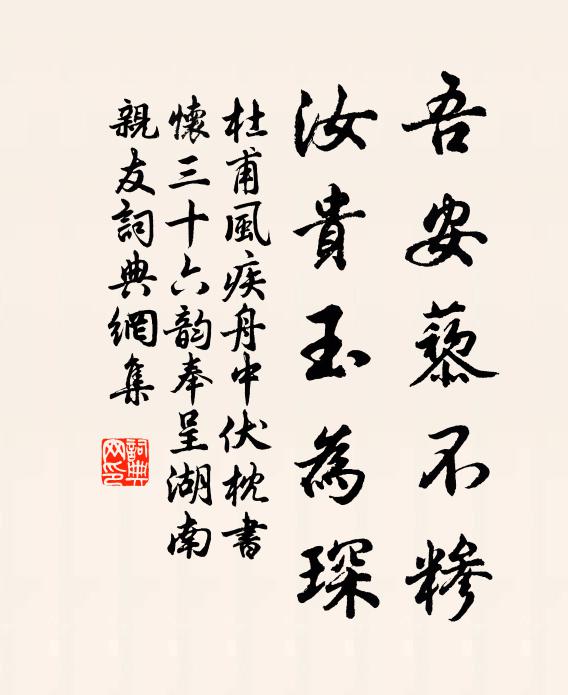 吾安藜不糝
汝貴玉為琛
杜甫風疾舟中伏枕書
懷三十六韵奉呈湖南
親友詞典網集
詞典网印